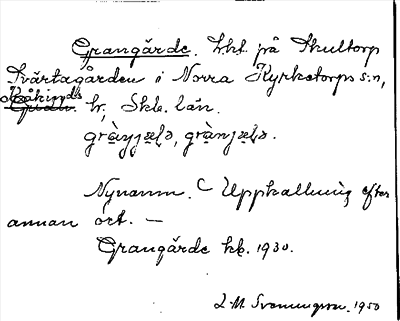 Grangärde. Lht. på Skultorp
Svärtagården i Norra Kyrketorps s:n,
Kåkinds
hr, Skbl. län.
Nynamn. Uppkallning efter
annan ort. —
Grangärde kb. 1930.
L.M. Svenungsson. 1950